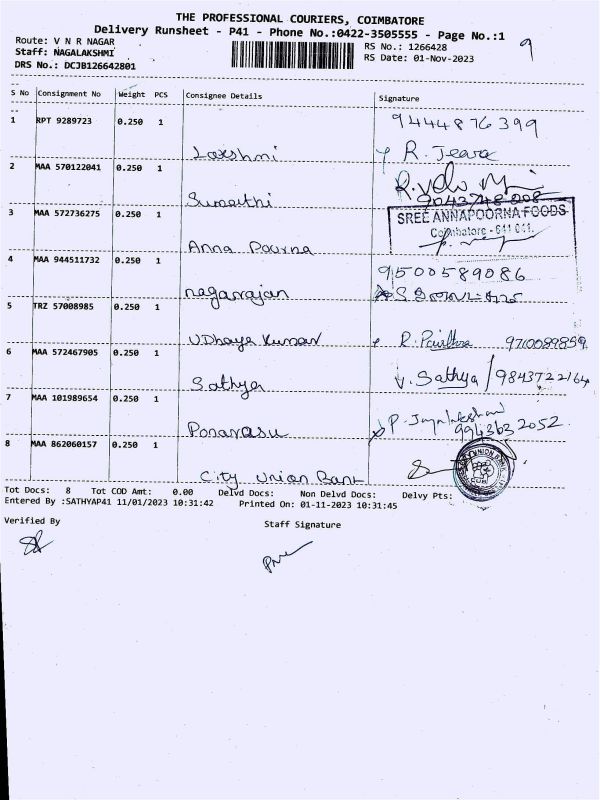 THE PROFESSIONAL COURIERS, COIMBATORE
Delivery Runsheet - P41 - Phone No.:0422-3505555 - Page No.:1
Route: V N R NAGAR RS No.: 1266428 9
Staff: NAGALAKSHMI RS Date: 01-Nov-2023
DRS No.: DCJB126642801
S No Consignment No Weight PCS Consignee Details Signature
1 RPT 9289723 0.250 1 9444876399
Lakshmi R. Jeeva
2 MAA 570122041 0.250 1
Sumathi 9043748208
3 MAA 572736275 0.250 1 SREE ANNAPOORNA FOODS
Coimbatore - 641 041.
Anna Pourna
4 MAA 944511732 0.250 1 9500589086
nagarajan
5 TRZ 57008985 0.250 1
UDhaya Kumar R. Pavithra 9710089859
6 MAA 572467905 0.250 1
Sathya V. Sathya / 9843722164
7 MAA 101989654 0.250 1 P.
Ponarasu 9943632052
8 MAA 862060157 0.250 1 UNION BANK
City Union Bank CUB
Tot Docs: 8 Tot COD Amt: 0.00 Delvd Docs: Non Delvd Docs: Delvy Pts:
Entered By :SATHYAP41 11/01/2023 10:31:42 Printed On: 01-11-2023 10:31:45
Verified By Staff Signature